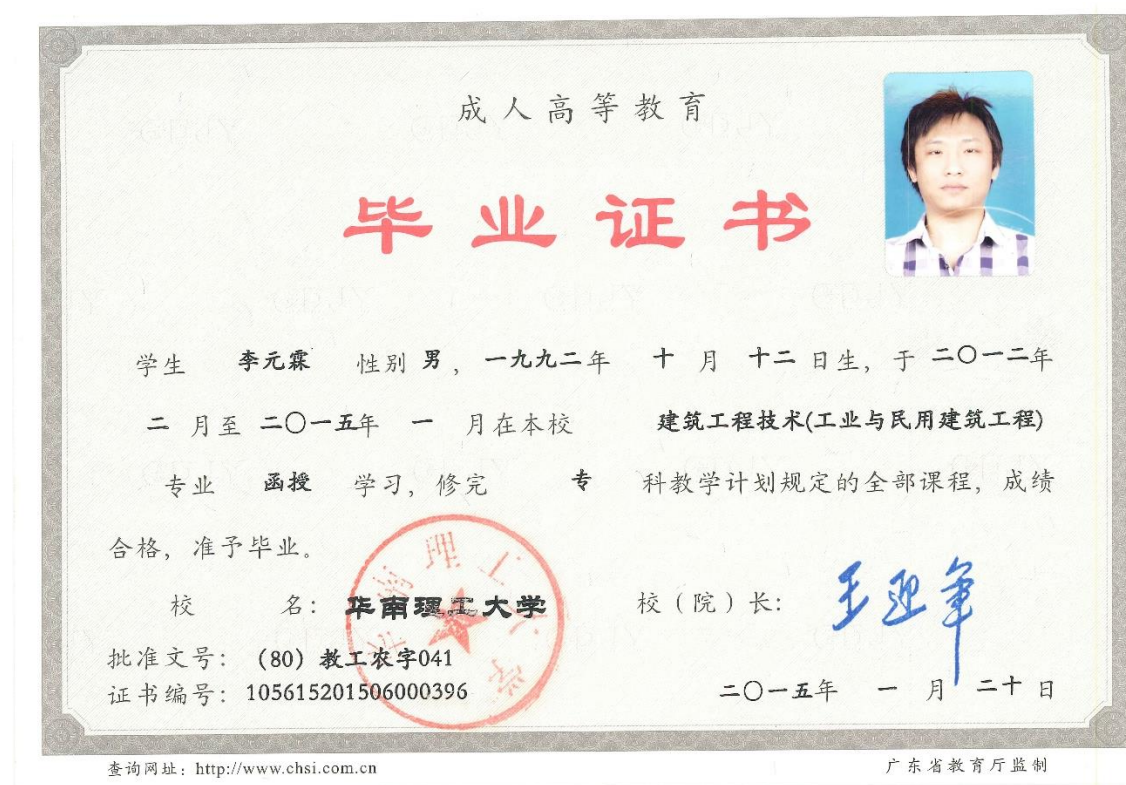 成人高等教育
毕业证书
学生 李元霖 性别 男，一九九二年 十 月 十二 日生，于 二〇一二年
二 月至 二〇一五年 一 月在本校 建筑工程技术(工业与民用建筑工程)
专业 函授 学习，修完 专 科教学计划规定的全部课程，成绩
合格，准予毕业。
校 名： 华南理工大学 校（院）长： 王迎军
华南理工大学
批准文号：（80）教工农字041
证书编号：105615201506000396 二〇一五年 一 月 二十 日
查询网址：http://www.chsi.com.cn 广东省教育厅监制